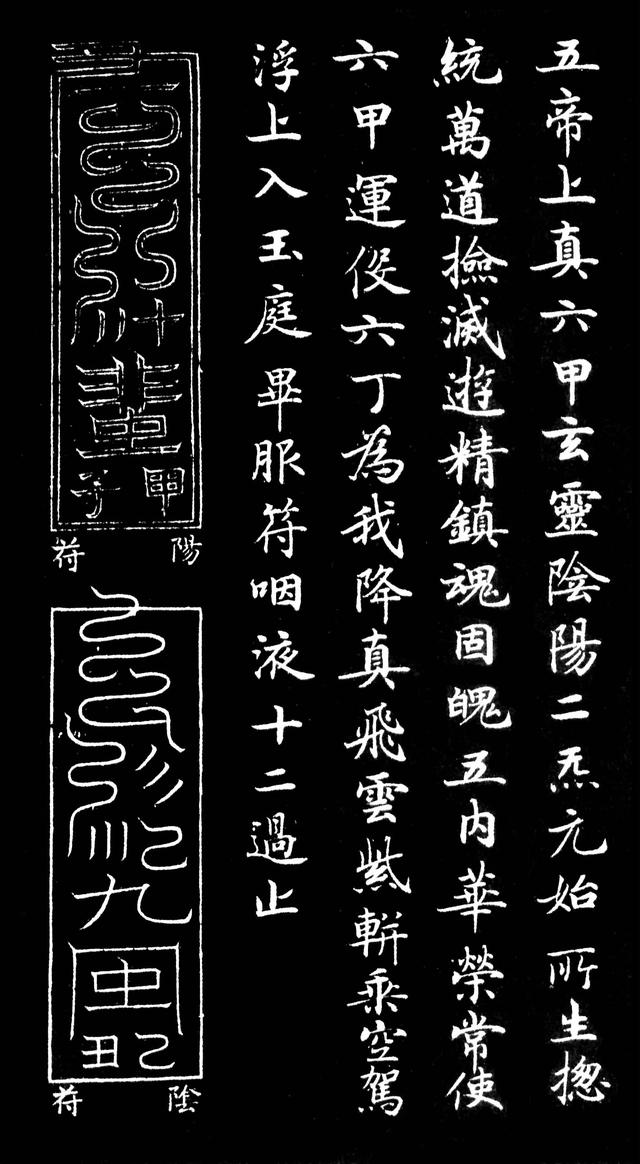 五帝上真六甲玄靈陰陽二炁元始所生揔
統萬道撿滅遊精鎮魂固魄五内華榮常使
六甲運役六丁為我降真飛雲紫輧乘空駕
浮上入玉庭畢服符咽液十二過止
甲子
陽符
九
己丑
陰符